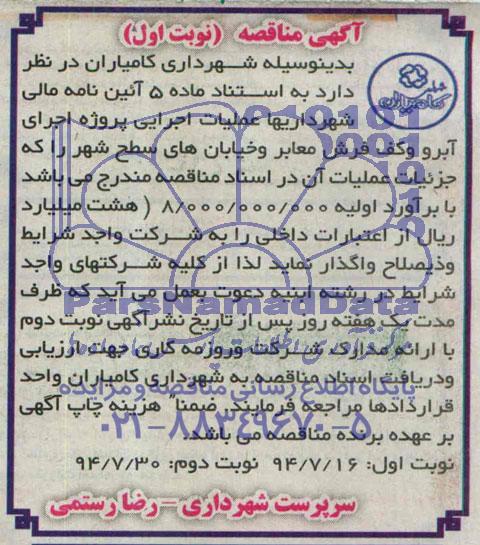 آگهی مناقصه (نوبت اول)
بدینوسیله شهرداری کامیاران در نظر
دارد به استناد ماده ۵ آئین نامه مالی
شهرداریها عملیات اجرایی پروژه اجرای
آبرو وکف فرش معابر وخیابان های سطح شهر را که
جزئیات عملیات آن در اسناد مناقصه مندرج می باشد
با برآورد اولیه ۸/۰۰۰/۰۰۰/۰۰۰ ( هشت میلیارد
ریال از اعتبارات داخلی را به شرکت واجد شرایط
وذیصلاح واگذار نماید لذا از کلیه شرکتهای واجد
شرایط در رشته ابنیه دعوت بعمل می آید که ظرف
مدت یک هفته روز پس از تاریخ نشر آگهی نوبت دوم
با ارائه مدارک شرکت ورزومه کاری جهت ارزیابی
ودریافت اسناد مناقصه به شهرداری کامیاران واحد
قراردادها مراجعه فرمایند. ضمنا" هزینه چاپ آگهی
بر عهده برنده مناقصه می باشد.
نوبت اول: ۹۴/۷/۱۶ نوبت دوم: ۹۴/۷/۳۰
سرپرست شهرداری – رضا رستمی
ParsNamadData
پایگاه اطلاع رسانی مناقصه و مزایده
۰۲۱-۸۸۳۴۹۶۷۰-۵